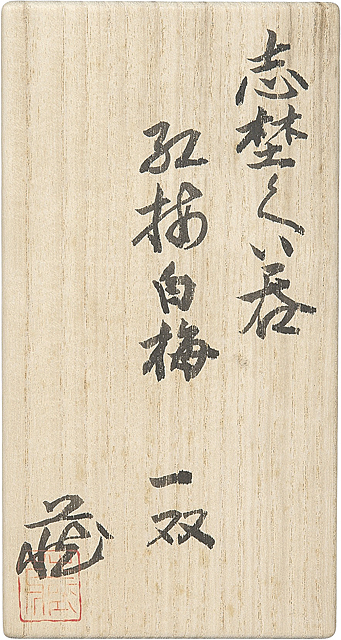 志埜ぐい呑
紅梅白梅 一双